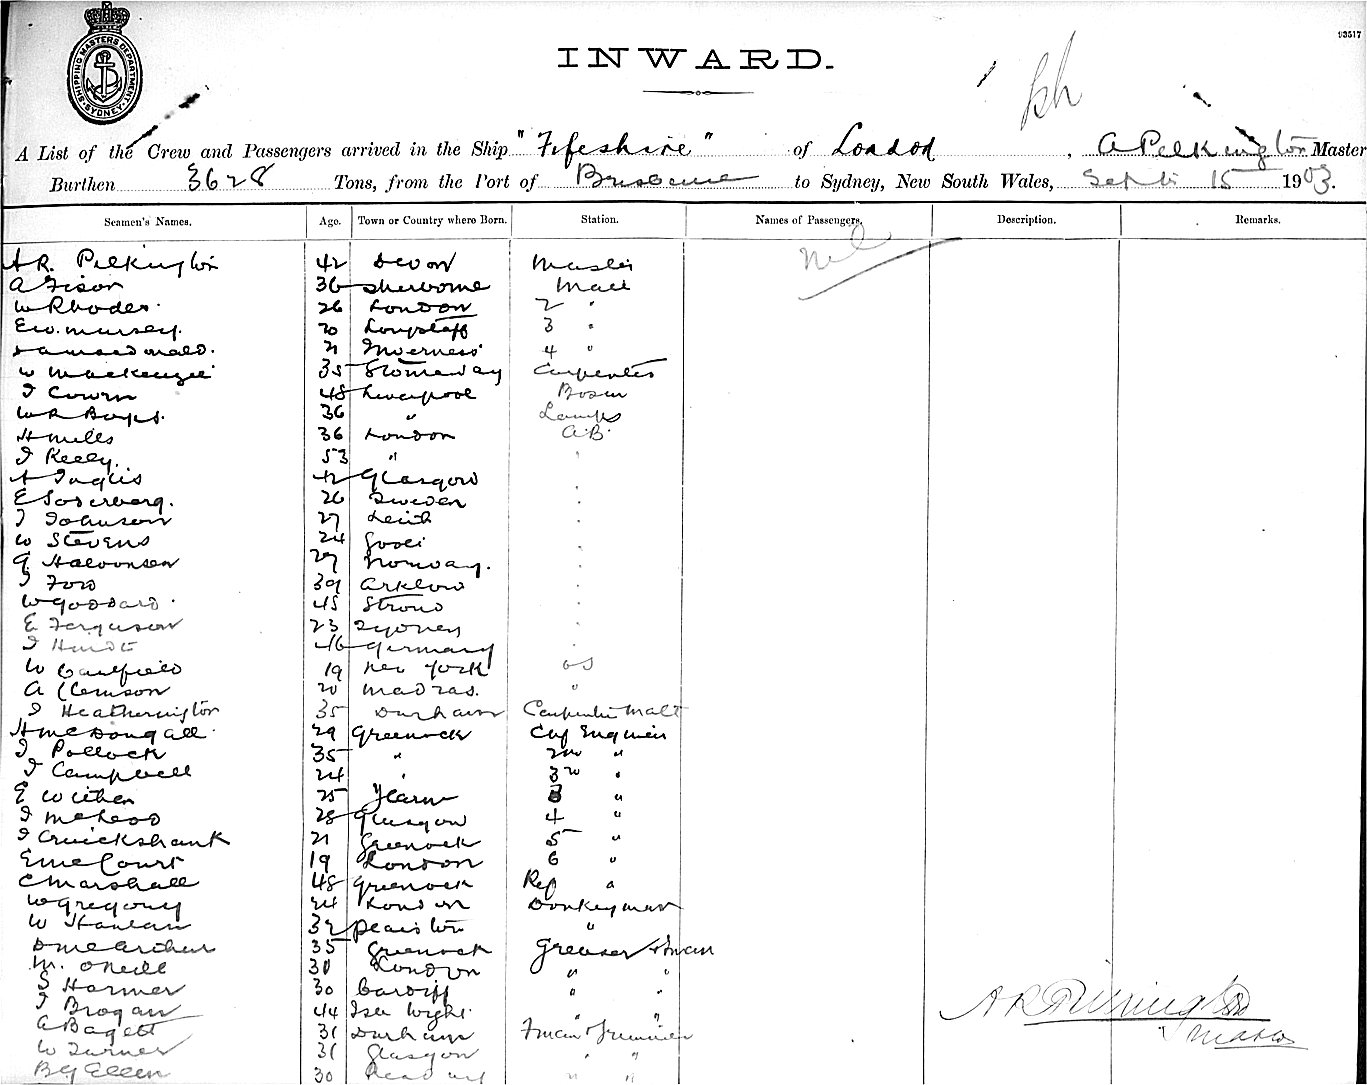 SHIPPING MASTERS DEPARTMENT SYDNEY
93517
INWARD.
A List of the Crew and Passengers arrived in the Ship "Fifeshire" of London, A Pilkington Master
Burthen 3628 Tons, from the Port of Brisbane to Sydney, New South Wales, Septr 15 1903.
Seamen's Names. Age. Town or Country where Born. Station. Names of Passengers. Description. Remarks.
A R. Pilkington 42 Devon Master nil
A Fison 36 Sherborne Mate
W Rhodes 26 London 2 "
E W. 20 Longstaff 3 "
21 Inverness 4 "
W Mackenzie 35 Stornaway Carpenter
J Cowan 48 Liverpool Bosun
W R Boyes. 36 " Lamps
H Mills 36 London A.B.
J Kelly. 53 "
A Inglis 42 Glasgow
E Soderberg. 26 Sweden
J Johnson 27 Leith
W Stevens 24 Goole
G Halvonsen 27 Norway.
J Ford 39 Arklow
W Goddard 45 Stroud
E Ferguson 23 Sydney
J 46 Germany
W Caulfield 19 New York OS
A Clemson 20 Madras. "
J Heatherington 35 Durham Carpenter Mate
H McDougall 29 Greenock Chf Engineer
J Pollock 35 " 2nd "
J Campbell 24 " 3rd "
E Withers 25 3 "
J McLeod 28 Glasgow 4 "
J Cruickshank 21 Greenock 5 "
E McCourt 19 London 6 "
C Marshall 48 Greenock Ref "
W Gregory 24 London Donkeyman
W Hanlan 32 "
D McArthur 35 Greenock Greaser & Fman
M. O'Neill 30 London " "
S Harmer 30 Cardiff " "
J Brogan 44 Isle Wight " "
A Bagett 31 Durham Fman & Trimmer
W Turner 31 Glasgow " "
B G Ellen 30 Reading " "
A R Pilkington
Master